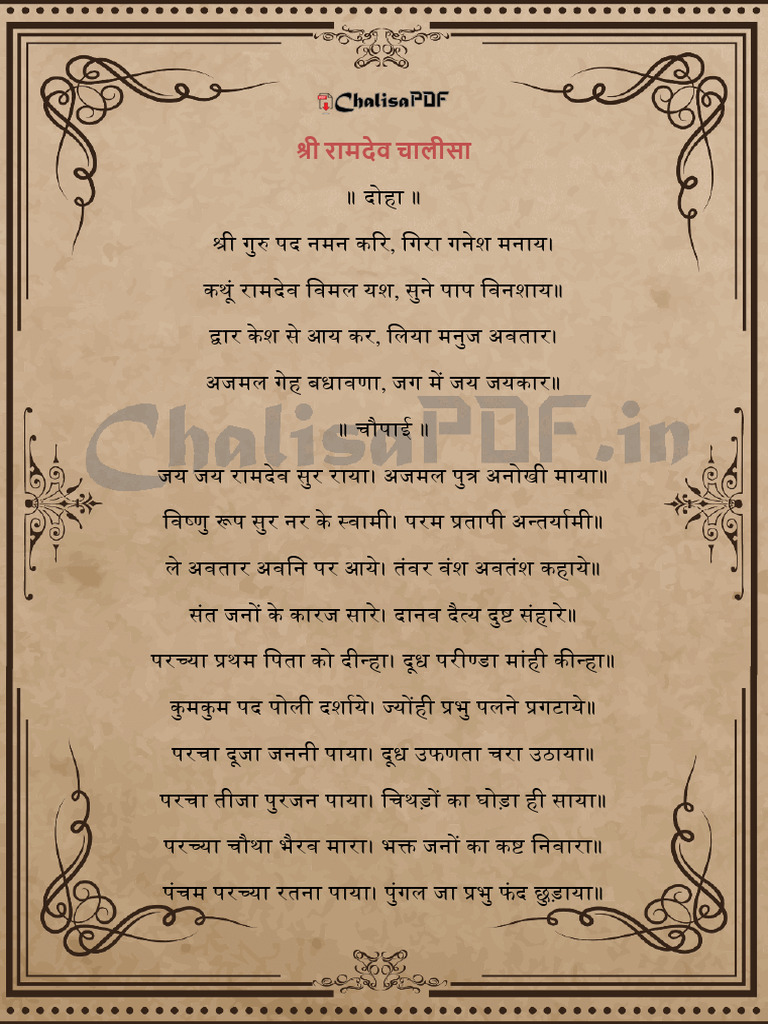 ChalisaPDF
श्री रामदेव चालीसा
॥ दोहा ॥
श्री गुरु पद नमन करि, गिरा गनेश मनाय।
कथूं रामदेव विमल यश, सुने पाप विनशाय॥
द्वार केश से आय कर, लिया मनुज अवतार।
अजमल गेह बधावणा, जग में जय जयकार॥
ChalisaPDF.in
॥ चौपाई ॥
जय जय रामदेव सुर राया। अजमल पुत्र अनोखी माया॥
विष्णु रूप सुर नर के स्वामी। परम प्रतापी अन्तर्यामी॥
ले अवतार अवनि पर आये। तंवर वंश अवतंश कहाये॥
संत जनों के कारज सारे। दानव दैत्य दुष्ट संहारे॥
परच्या प्रथम पिता को दीन्हा। दूध परीण्डा मांही कीन्हा॥
कुमकुम पद पोली दर्शाये। ज्योंही प्रभु पलने प्रगटाये॥
परचा दूजा जननी पाया। दूध उफणता चरा उठाया॥
परचा तीजा पुरजन पाया। चिथड़ों का घोड़ा ही साया॥
परच्या चौथा भैरव मारा। भक्त जनों का कष्ट निवारा॥
पंचम परच्या रतना पाया। पुंगल जा प्रभु फंद छुड़ाया॥